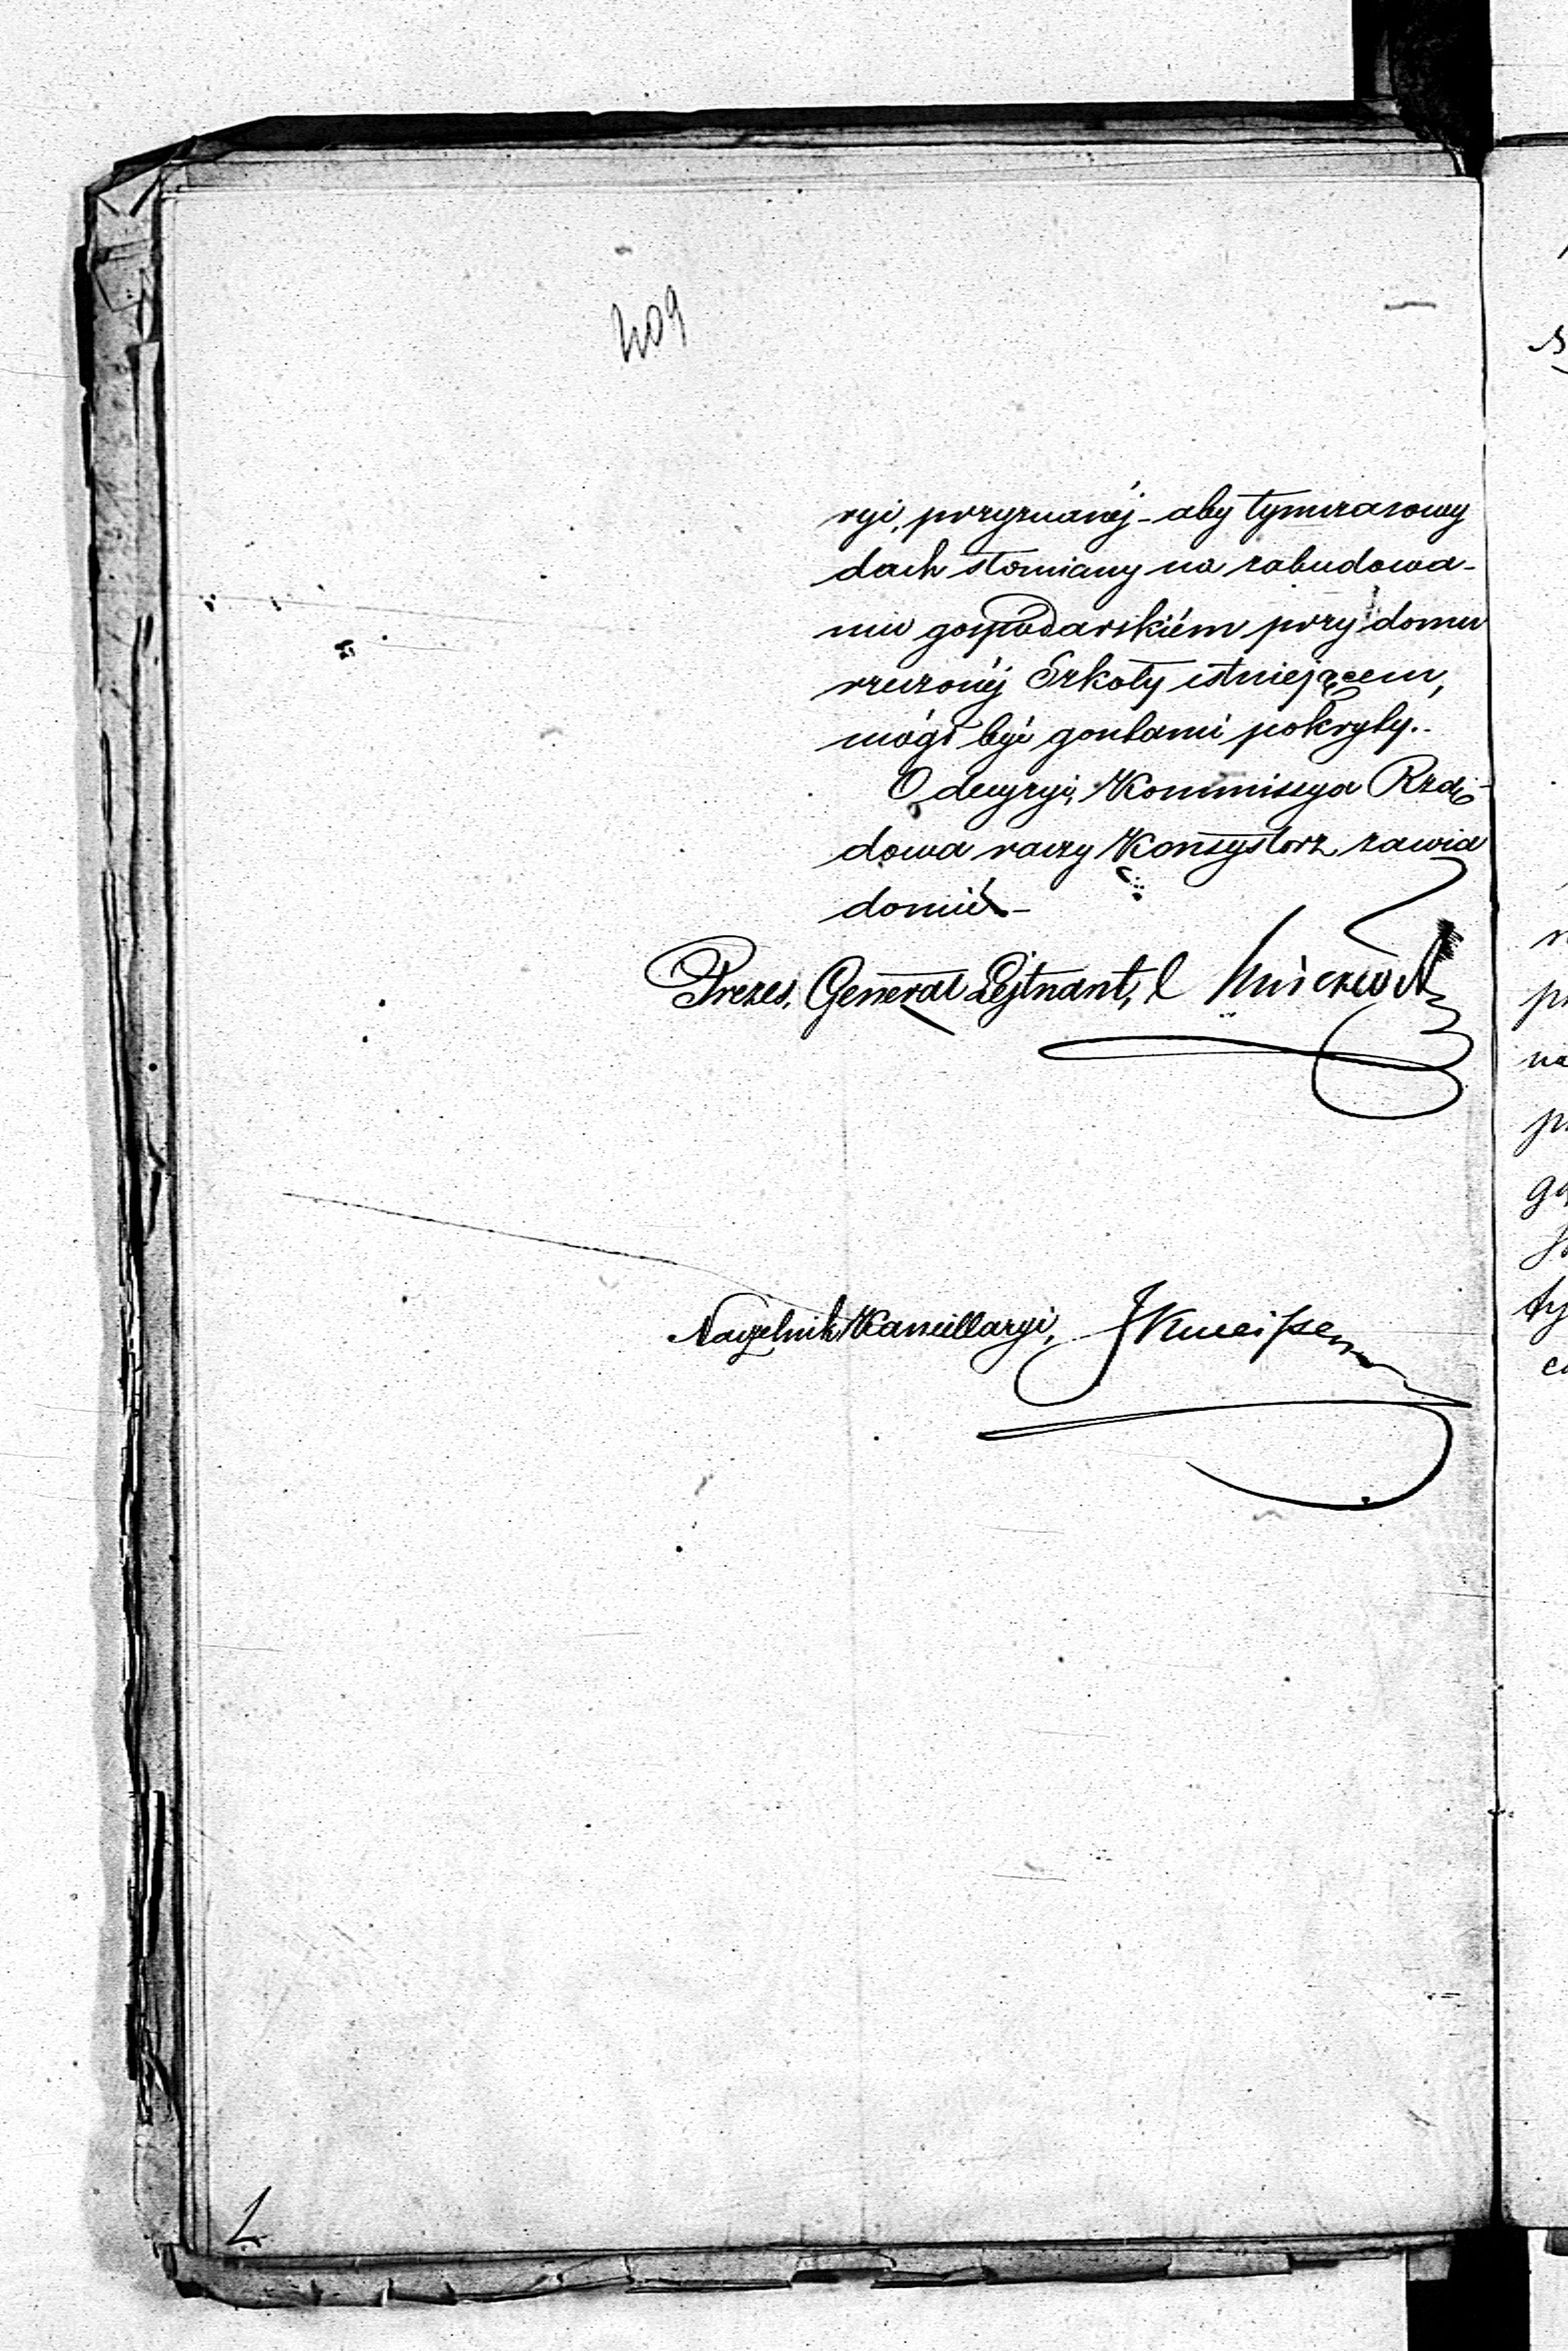 409
ryi, przyznanéj - aby tymczasowy
dach słomiany na zabudowa-
niu gospodarskiém przy domu
rzeczonéj Szkoły istniejącem,
mógł być gontami pokryty.
O decyzyi, Kommissya Rzą-
dowa raczy Konsystorz zawia
domić. -
Prezes, Generał Lejtnant,
Naczelnik Kancellaryi,